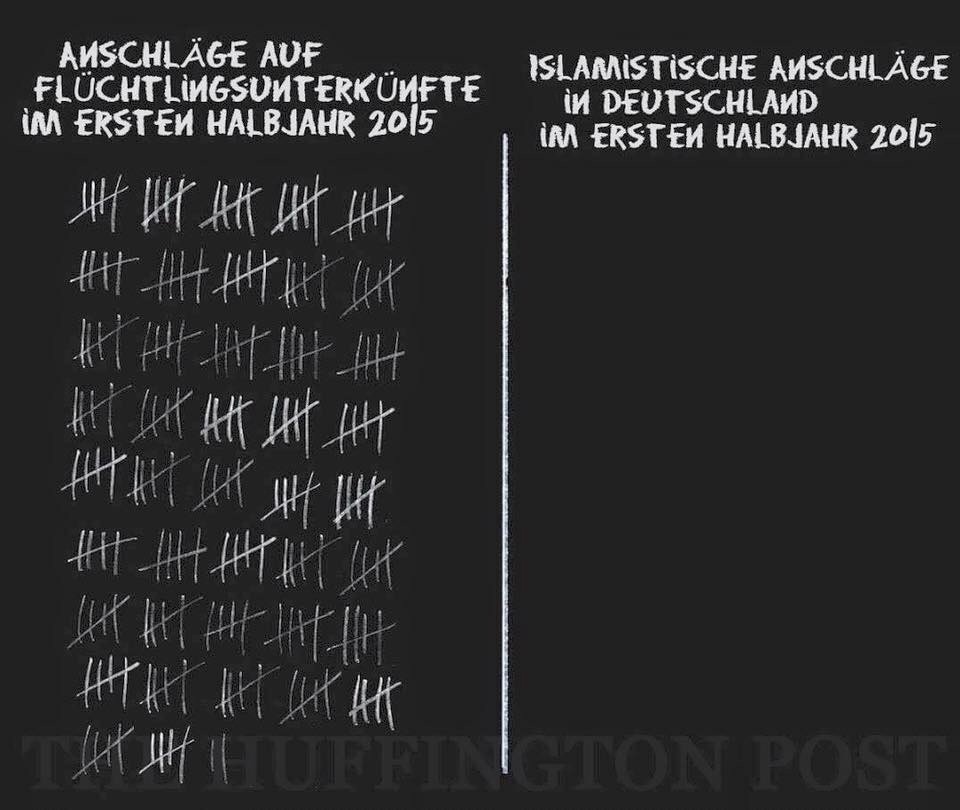 ANSCHLÄGE AUF
FLÜCHTLINGSUNTERKÜNFTE
IM ERSTEN HALBJAHR 2015
ISLAMISTISCHE ANSCHLÄGE
IN DEUTSCHLAND
IM ERSTEN HALBJAHR 2015
THE HUFFINGTON POST